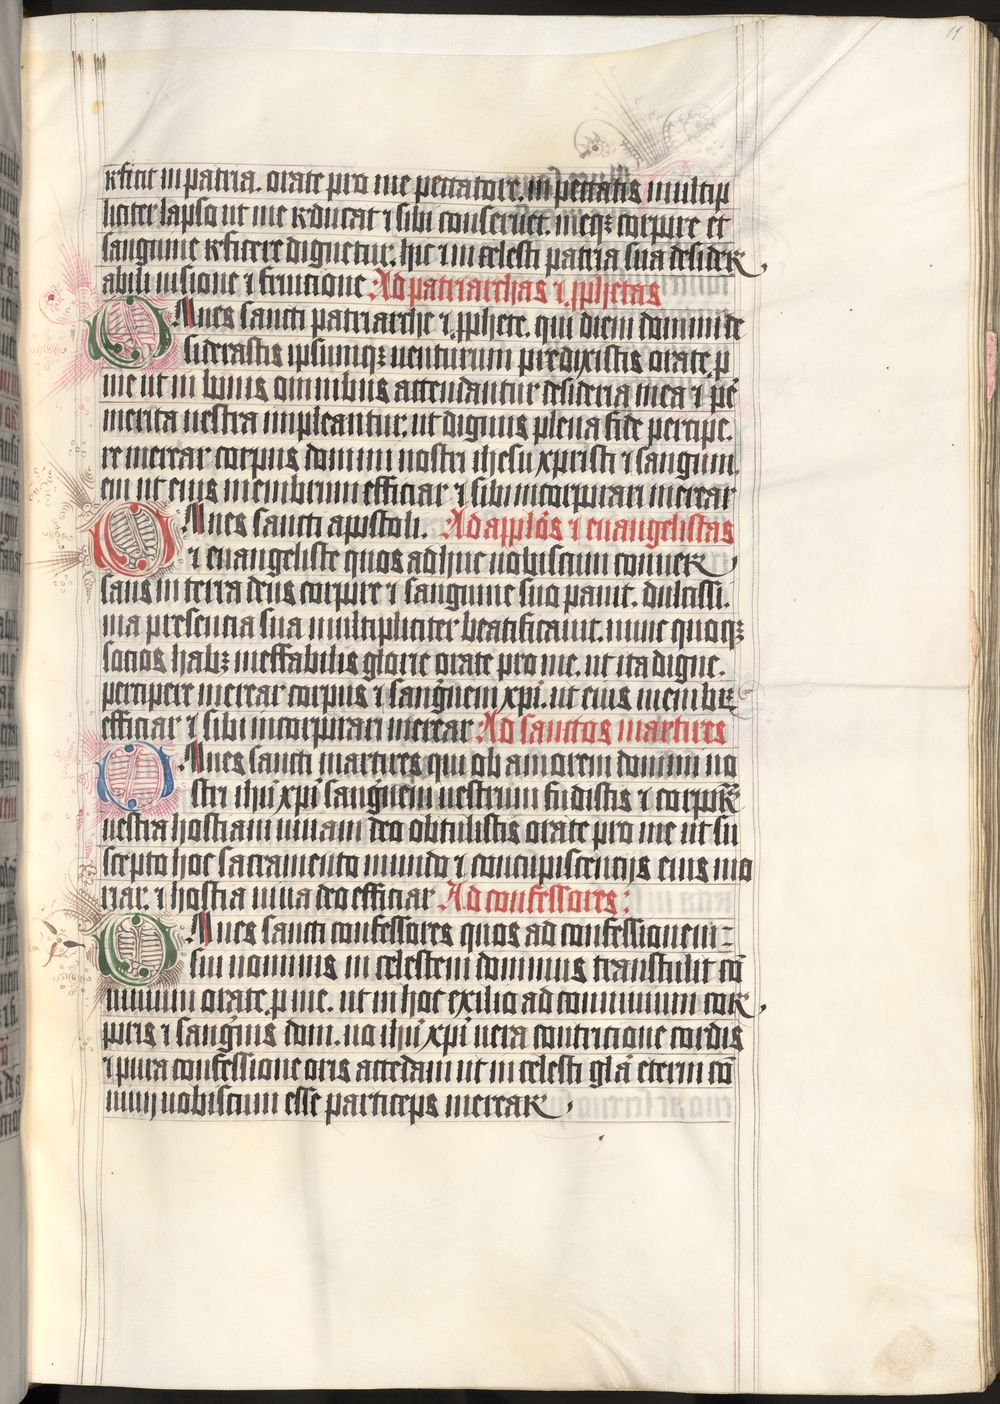 reficit in patria. orate pro me peccatore. in peccatis multip
liciter lapso ut me reducat ⁊ sibi conseruet. meqꝫ corpore et
sanguine reficere dignetur. hic ⁊ in celesti patria sua desider
abili uisione ⁊ fruicione Ad patriarchas ⁊ ꝓphetas
Omnes sancti patriarche ⁊ ꝓphete. qui diem domini de
siderastis ipsumqꝫ uenturum predixistis orate ꝓ
me ut in bonis omnibus attendantur desideria mea ⁊ per
merita uestra impleantur. ut dignus plena fide percipe.
re merear corpus domini nostri ihesu xpristi ⁊ sanguin.
em ut eius membrum efficiar ⁊ sibi incorporari merear
Omnes sancti apostoli. Ad applōs ⁊ euangelistas
⁊ euangeliste quos adhuc uobiscum conuer
sans in terra deus corpore ⁊ sanguine suo pauit. dulcissi.
ma presencia sua multipliciter beatificauit. nunc quoqꝫ
socios habꝫ ineffabilis glorie orate pro me. ut ita digne.
percipere merear corpus ⁊ sangͥnem xpī. ut eius membrū
efficiar ⁊ sibi incorporari merear Ad sanctos martires
Omnes sancti martires qui ob amorem domini no
stri ihū xpī sanguinem uestrum fudistis ⁊ corpora
uestra hostiam uiuam deo obtulistis orate pro me ut su
scepto hoc sacramento mundo ⁊ concupiscencijs eius mo
riar. ⁊ hostia uiua deo efficiar Ad confessores:
Omnes sancti confessores quos ad confessionem
sui nominis in celestem dominus transtulit cō
uiuium orate ꝓ me. ut in hoc exilio ad conuiuium cor
poris ⁊ sangͥnis dom. no ihū xpī uera contricione cordis
⁊ pura confessione oris accedam ut in celesti glā eterni cō
uiuij uobiscum esse particeps merear
11